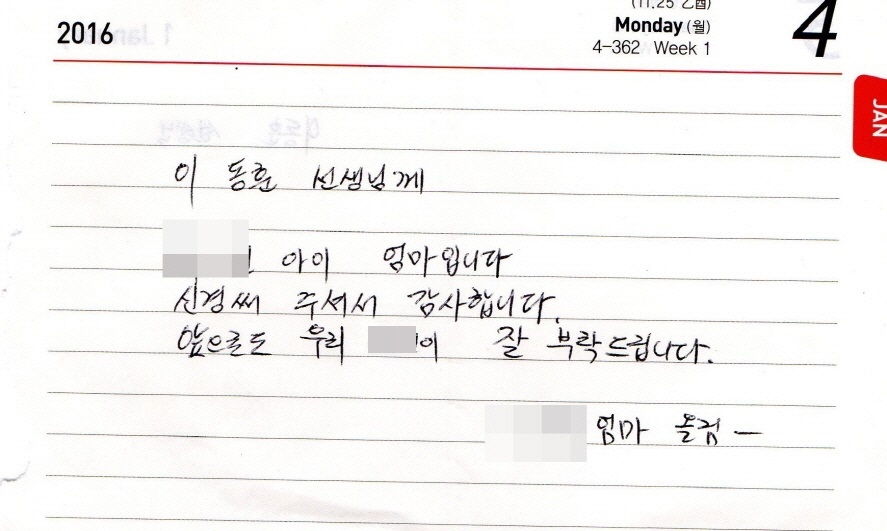 2016
(11.25 乙酉)
Monday (월)
4-362 Week 1
4
JAN
이 동훈 선생님께
아이 엄마입니다
신경써 주셔서 감사합니다.
앞으로도 우리 이 잘 부락드립니다.
엄마 올림 -